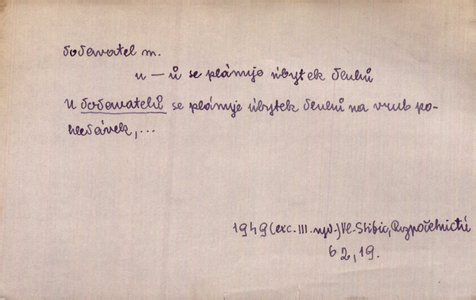 dodavatel m.
u – ů se plánuje úbytek dluhů
U dodavatelů se plánuje úbytek dluhů na vrub po-
hledávek,...
1949 (exc. III. vyd.) Vl. Stibic, Rozpočetnictví
62,19.